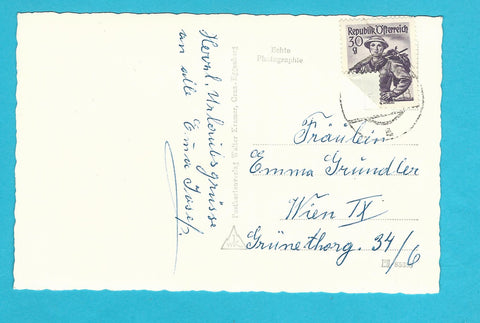 Herzl. Urlaubsgrüsse
an alle Euer Josef.
Postkartenverlag Walter Kramer, Graz-Eggenberg
Echte
Photographie
30
g
Republik Österreich
Fräulein
Emma Gründler
Wien IX
Grünethorg. 34/6